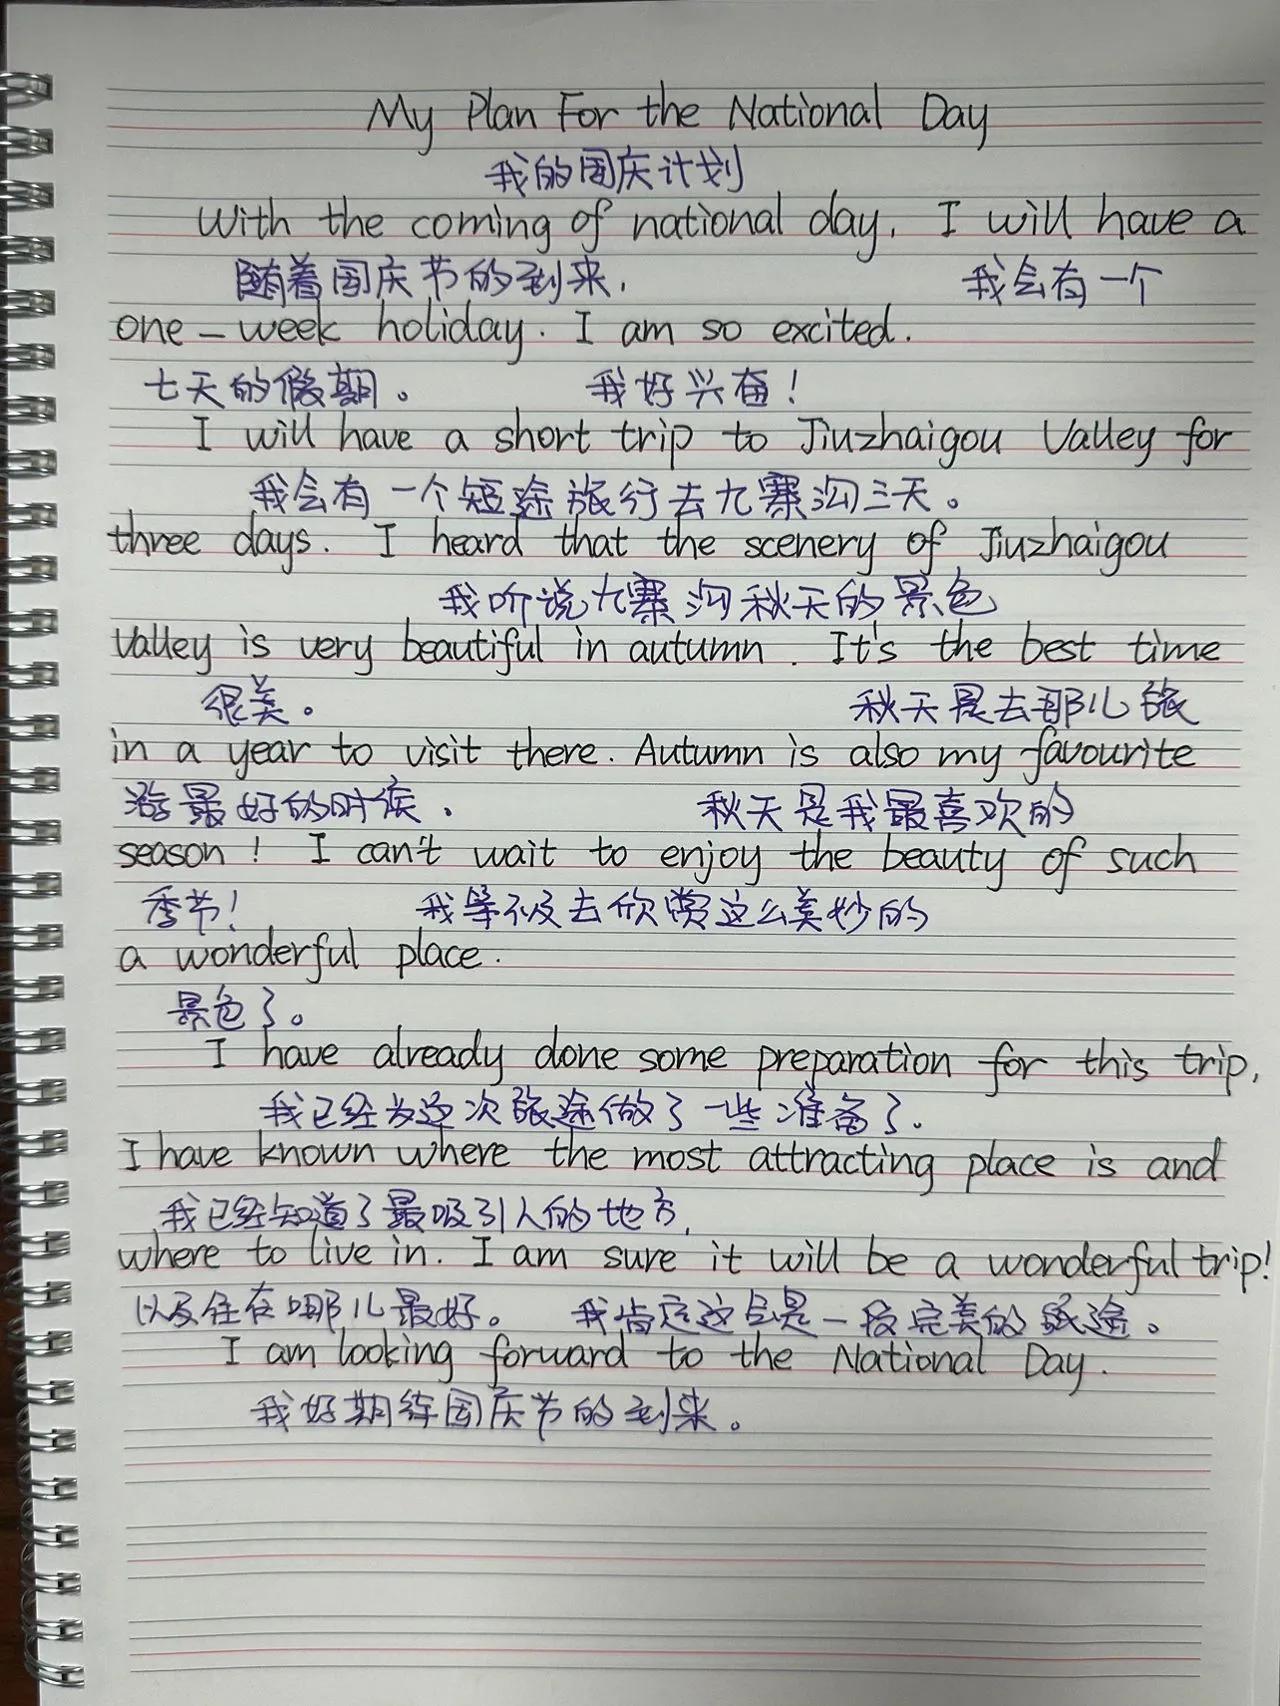 My Plan For the National Day
我的国庆计划
With the coming of national day, I will have a
随着国庆节的到来, 我会有一个
one-week holiday. I am so excited.
七天的假期。 我好兴奋!
I will have a short trip to Jiuzhaigou Valley for
我会有一个短途旅行去九寨沟三天。
three days. I heard that the scenery of Jiuzhaigou
我听说九寨沟秋天的景色
Valley is very beautiful in autumn. It's the best time
很美。 秋天是去那儿旅
in a year to visit there. Autumn is also my favourite
游最好的时候. 秋天是我最喜欢的
season! I can't wait to enjoy the beauty of such
季节! 我等不及去欣赏这么美妙的
a wonderful place.
景色了。
I have already done some preparation for this trip,
我已经为这次旅途做了一些准备了.
I have known where the most attracting place is and
我已经知道了最吸引人的地方,
where to live in. I am sure it will be a wonderful trip!
以及住在哪儿最好。 我肯定这会是一段完美的旅途。
I am looking forward to the National Day.
我好期待国庆节的到来。